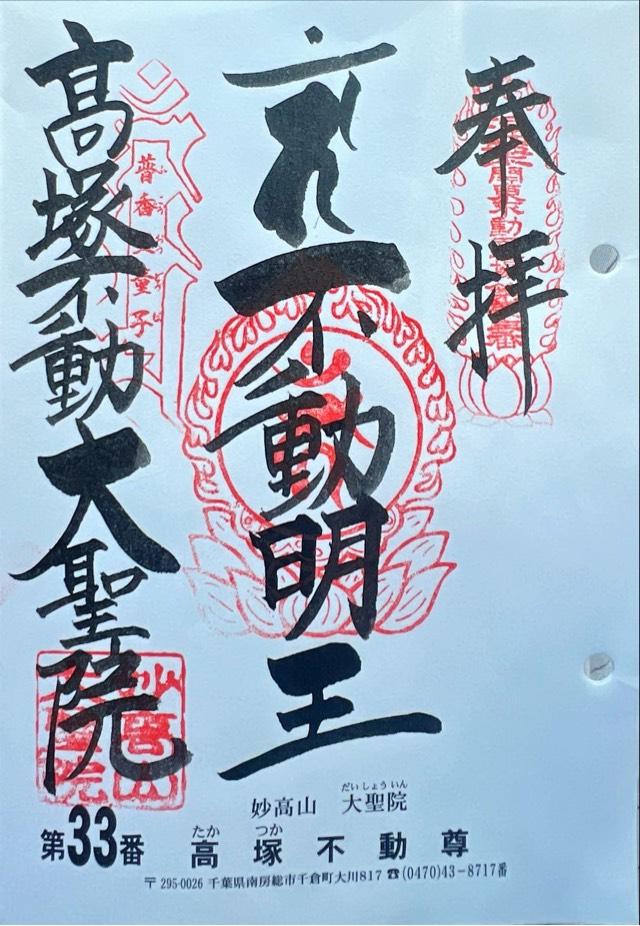 奉拝
不動明王
高塚不動
大聖院
普香
童子
妙高山 大聖院
だいしょういん
第33番 高塚不動尊
たか つか
〒295-0026 千葉県南房総市千倉町大川817 ☎(0470)43-8717番